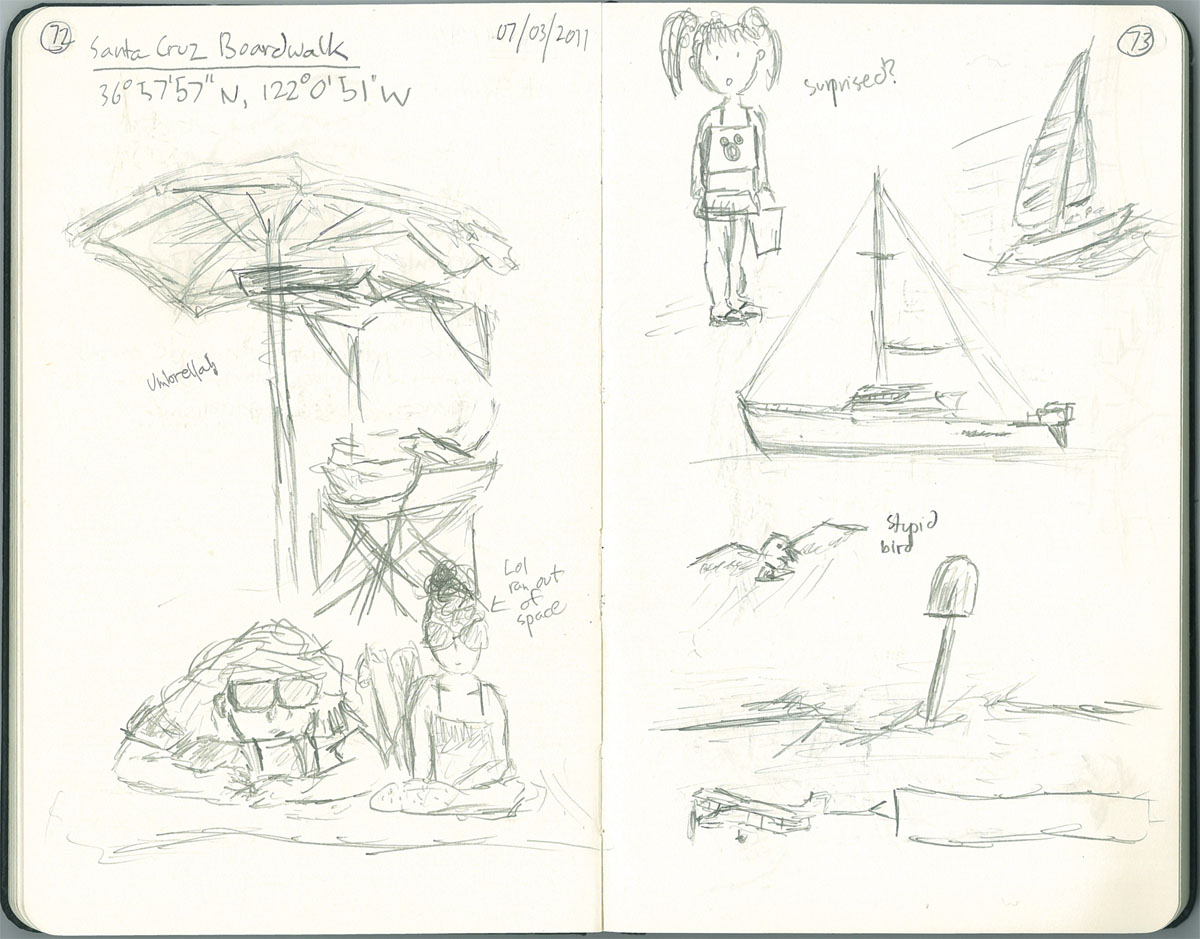 72
Santa Cruz Boardwalk
07/03/2011
36°57'57"N, 122°0'51"W
Umbrellas
Lol
ran out
of
space
73
surprised?
stupid
bird